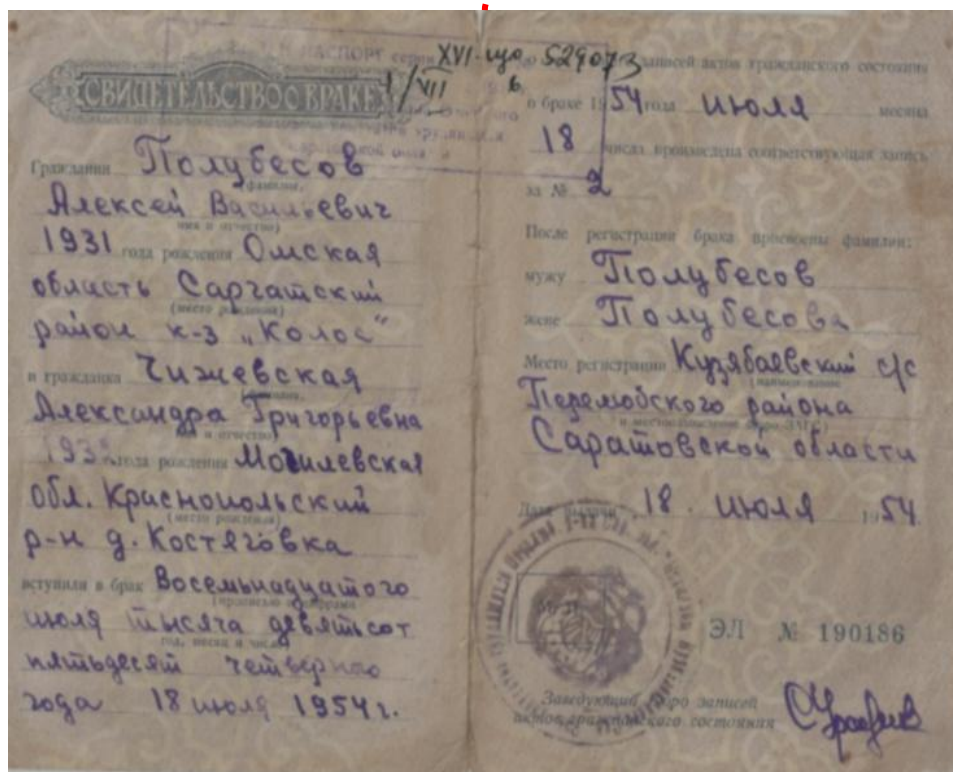 ПАСПОРТ серии XVI-що № 529073
СВИДЕТЕЛЬСТВО О БРАКЕ
Гражданин Полубесов
(фамилия,
Алексей Васильевич
имя и отчество)
1931 года рождения Омская
область Саргатский
(место рождения)
район к-з „Колос"
и гражданка Чижевская
(фамилия,
Александра Григорьевна
имя и отчество)
193 года рождения Могилевская
обл. Краснопольский
(место рождения)
р-н д. Костяговка
вступили в брак Восемьнадцатого
(прописью и цифрами
июля тысяча девятьсот
год, месяц и число)
пятьдесят четверного
года 18 июля 1954 г.
записей актов гражданского состояния
о браке 1954 года июля месяца
18 числа произведена соответствующая запись
за № 2
После регистрации брака присвоены фамилии:
мужу Полубесов
жене Полубесова
Место регистрации Кузябаевский с/с
(наименование
Перелюбского района
и местонахождение бюро ЗАГС)
Саратовской области
Дата выдачи 18 июля 1954.
ЭЛ № 190186
Заведующий бюро записей
актов гражданского состояния